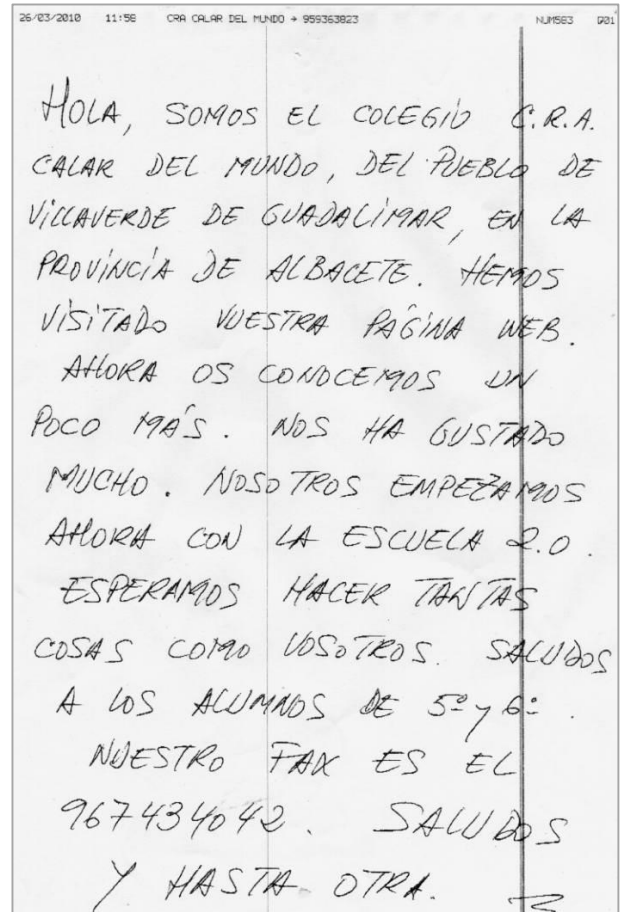 26/03/2010 11:58 CRA CALAR DEL MUNDO → 959363823 NUM583 D01
HOLA, SOMOS EL COLEGIO C.R.A.
CALAR DEL MUNDO, DEL PUEBLO DE
VILLAVERDE DE GUADALIMAR, EN LA
PROVINCIA DE ALBACETE. HEMOS
VISITADO VUESTRA PÁGINA WEB.
AHORA OS CONOCEMOS UN
POCO MÁS. NOS HA GUSTADO
MUCHO. NOSOTROS EMPEZAMOS
AHORA CON LA ESCUELA 2.0.
ESPERAMOS HACER TANTAS
COSAS COMO VOSOTROS. SALUDOS
A LOS ALUMNOS DE 5º y 6º.
NUESTRO FAX ES EL
967434042. SALUDOS
Y HASTA OTRA.